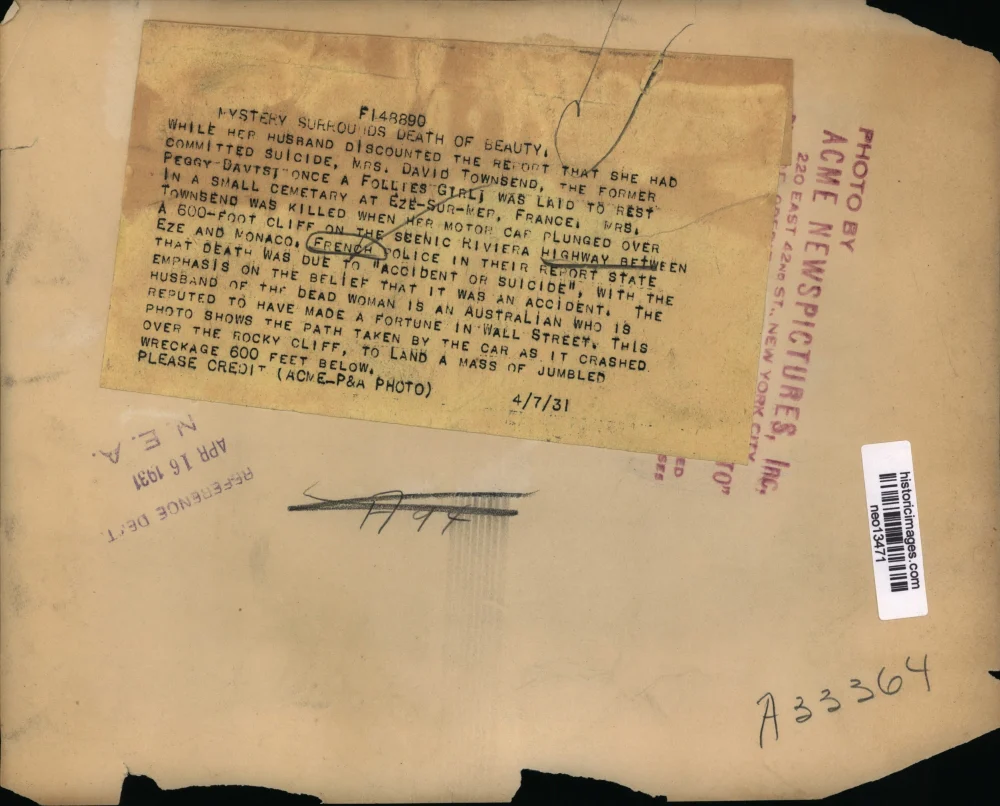 F148890
MYSTERY SURROUNDS DEATH OF BEAUTY.
WHILE HER HUSBAND DISCOUNTED THE REPORT THAT SHE HAD
COMMITTED SUICIDE, MRS. DAVID TOWNSEND, THE FORMER
PEGGY DAVIS, ONCE A FOLLIES GIRL, WAS LAID TO REST
IN A SMALL CEMETARY AT EZE-SUR-MER, FRANCE. MRS.
TOWNSEND WAS KILLED WHEN HER MOTOR CAR PLUNGED OVER
A 600-FOOT CLIFF ON THE SCENIC RIVIERA HIGHWAY BETWEEN
EZE AND MONACO. FRENCH POLICE IN THEIR REPORT STATE
THAT DEATH WAS DUE TO "ACCIDENT OR SUICIDE", WITH THE
EMPHASIS ON THE BELIEF THAT IT WAS AN ACCIDENT. THE
HUSBAND OF THE DEAD WOMAN IS AN AUSTRALIAN WHO IS
REPUTED TO HAVE MADE A FORTUNE IN WALL STREET. THIS
PHOTO SHOWS THE PATH TAKEN BY THE CAR AS IT CRASHED
OVER THE ROCKY CLIFF, TO LAND A MASS OF JUMBLED
WRECKAGE 600 FEET BELOW.
PLEASE CREDIT (ACME-P&A PHOTO)
4/7/31
PHOTO BY
ACME NEWSPICTURES, INC.
220 EAST 42ND ST., NEW YORK CITY
TO"
ED
SES
N. E. A.
APR 16 1931
REFERENCE DEPT.
historicimages.com
neo13471
A33364